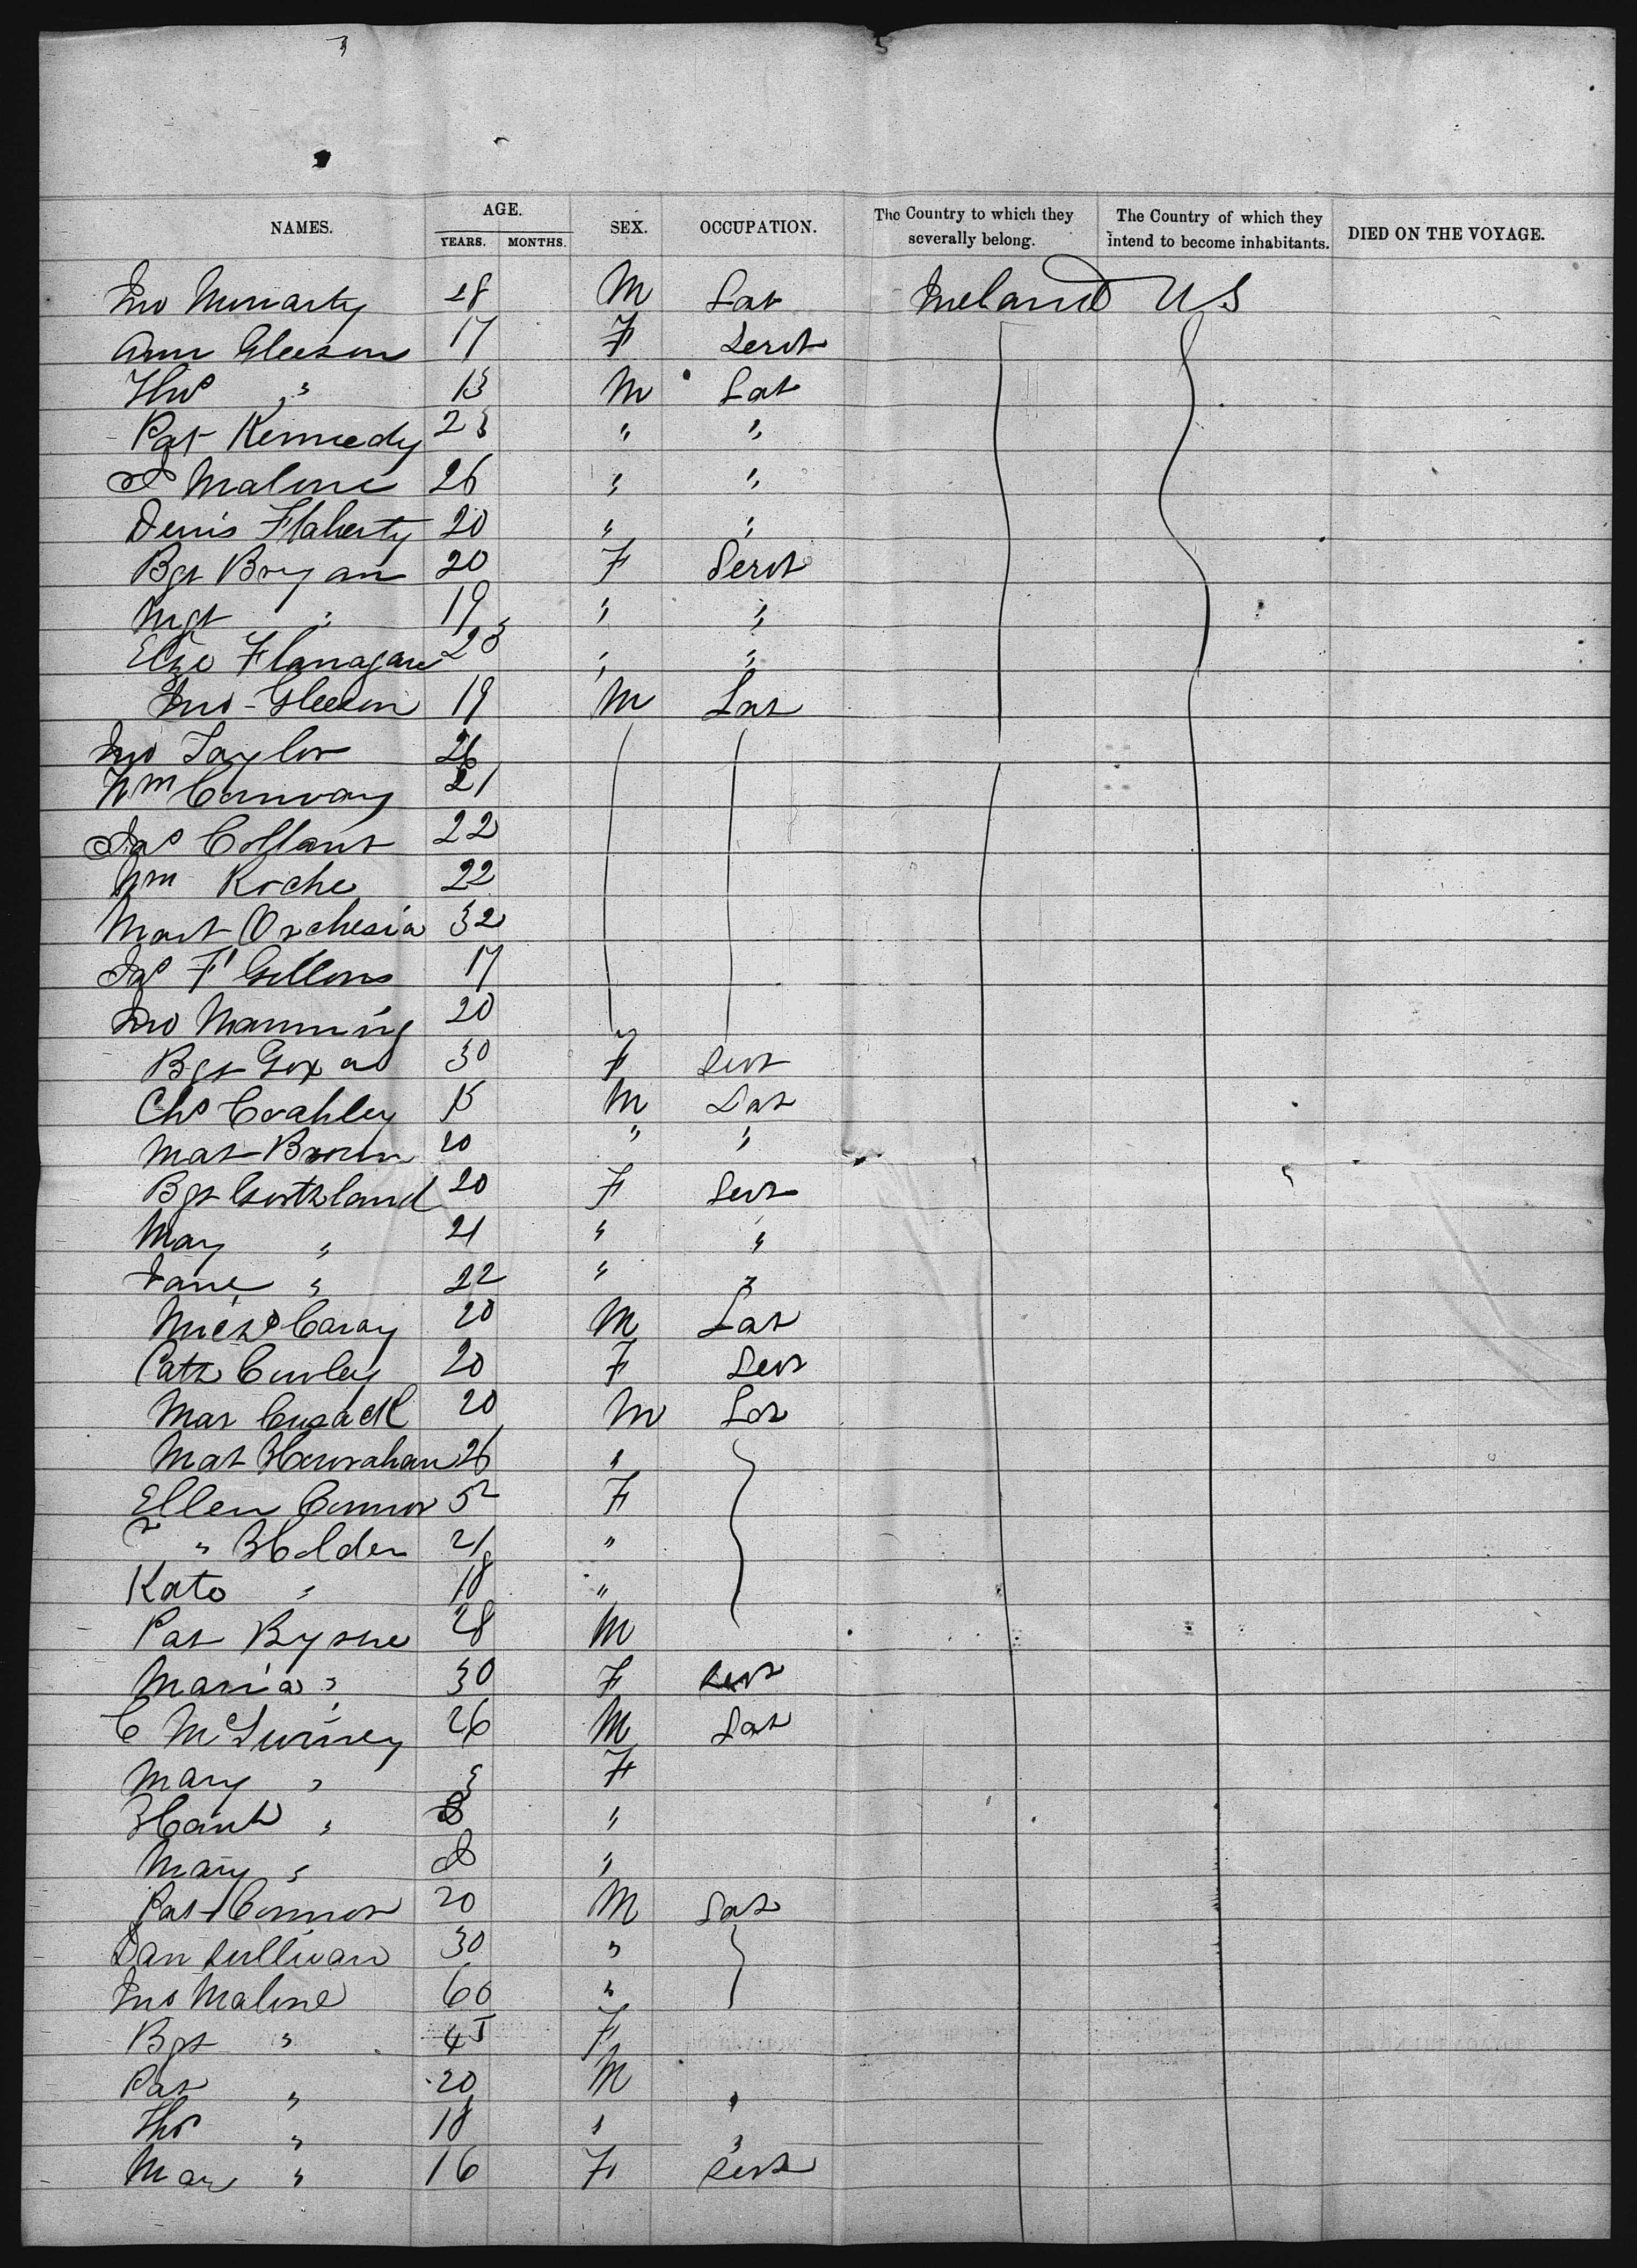 NAMES. AGE. YEARS. MONTHS. SEX. OCCUPATION. The Country to which they severally belong. The Country of which they intend to become inhabitants. DIED ON THE VOYAGE.
Jno Moriarty 28 M Lab Ireland US
Ann Gleeson 17 F Servt
Thos " 13 M Lab
Pat Kennedy 23 " "
P Malone 26 " "
Denis Flaherty 20 " "
Bgt Bryan 20 F Servt
Mgt " 19 " "
Eliza Flanagan 23 " "
Jno Gleeson 19 M Lab
Jno Taylor 26
Wm Conway 21
Jas 22
Wm Roche 22
Mart 32
Jas 17
Jno Manning 20
Bgt 30 F Servt
Chs 15 M Lab
Mat Brown 20 " "
Bgt 20 F Servt
May " 21 " "
Jane " 22 " "
Michl 20 M Lab
Cath Curley 20 F Servt
Mat Cusack 20 M Lab
Mat Hanrahan 26 "
Ellen Connor 52 F
" Holden 21 "
Kate " 18 "
Pat Byrne 28 M
Maria " 30 F Servt
C 26 M Lab
Mary " F
" "
Mary " 8 "
Pat Connor 20 M Lab
Dan Sullivan 30 "
Jno Malone 60 "
Bgt " 45 F
Pat " 20 M "
Thos " 18 " "
Mary " 16 F Servt